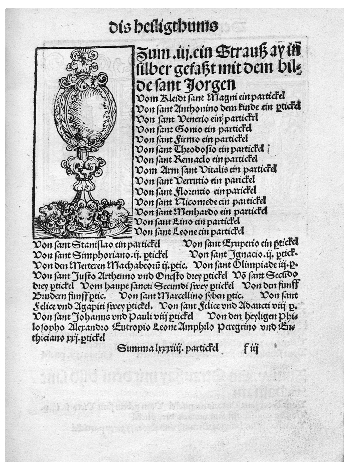 dis heiligthums
Zum .iij. ein Strauß ay in
silber gefaßt mit dem bil-
de sant Jorgen
Vom Kleidt sant Magni ein partickel
Von sant Anthonino dem kinde ein ptickel
Von sant Venerio ein partickel
Von sant Gonio ein partickel
Von sant Firmo ein partickel
Von sant Theodosio ein partickel
Von sant Remaclo ein partickel
Vom Arm sant Vitalis ein partickel
Von sant Verrutio ein partickel
Von sant Florentio ein partickel
Von sant Nicomede ein partickel
Von sant Menhardo ein partickel
Von sant Lino ein partickel
Von sant Leone ein partickel
Von sant Stanislao ein partickel Von sant Emperio ein ptickel
Von sant Simphoriano .ij. ptickel Von sant Ignacio .ij. ptick-
Von den Merteren Machabeorū ij. ptic. Von sant Olimpiade iij. p-
Von sant Justo Arthemio vnd Onesto drey ptickel Vō sant Secūdo
drey ptickel Vom haupt sancti Secundi zwey ptickel Von den funff
Brudern funff ptic. Von sant Marcellino sybn ptic. Von sant
Felice vnd Agapiti zwey ptickel. Von sant Felice vnd Adaucti viij p-
Von sant Johannis vnd Pauli viij ptickel Von den heyligen Phi-
losopho Alexandro Eutropio Leone Amphilo Peregrino vnd Eu-
thiciano xxj ptickel
Summa lxxxiij. partickel f iij